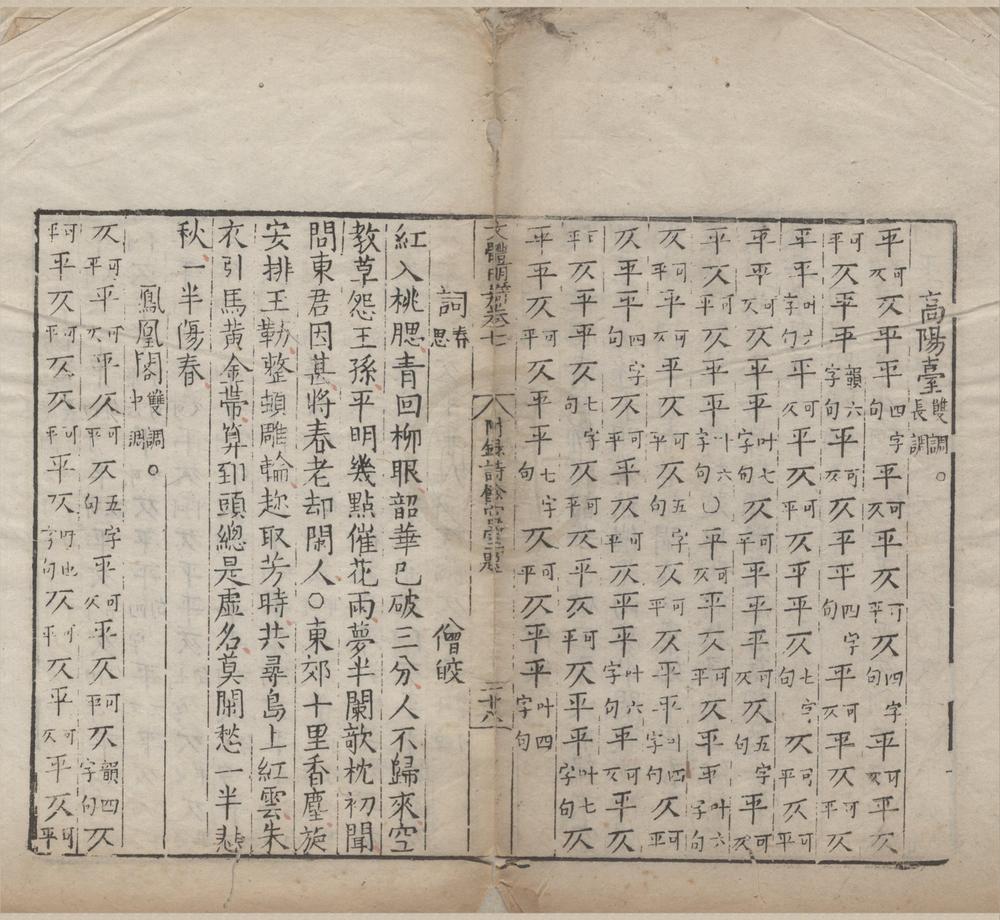 高陽臺雙調長調。
平可仄仄平平四字句平可仄平仄可平仄四字句平可仄平仄
可平仄平仄韻六字句平可仄仄平平四字句平可仄仄可平仄
平平叶六字句平可仄平仄可平平平仄仄七字句仄可平仄可平
平平可仄平平仄叶七字句平可仄平平仄可仄平五字句平可仄
平仄可平平平平叶六字句〇平可仄平仄可平仄仄平叶六字句
仄可平仄平平可平仄五字句仄可平平仄平叶四字句仄可平
仄平仄四字句平可平平仄可平平仄平叶六字句平可仄平仄
可平平仄仄平七字句平可平仄平仄可平仄平平叶七字句仄
平平仄可平平平七字句仄可平仄平平叶四字句
文體明辯卷七 附錄詩餘 二十八
詞春思 僧皎
紅入桃腮青回柳眼韶華已破三分人不歸來空
教草怨王孫平明幾點催花雨夢半闌欹枕初聞
問東君因甚將春老却閑人〇東郊十里香塵旋
安排玉勒整頓雕輪趂取芳時共尋島上紅雲朱
衣引馬黃金帶算到頭總是虛名莫閑愁一半悲
秋一半傷春
鳳凰閣雙調中調。
仄可平平可仄平仄可平仄五字句平可仄平仄可平仄韻四字句仄
可平平仄可平仄仄可平平仄字句仄可平仄平可仄平仄可平